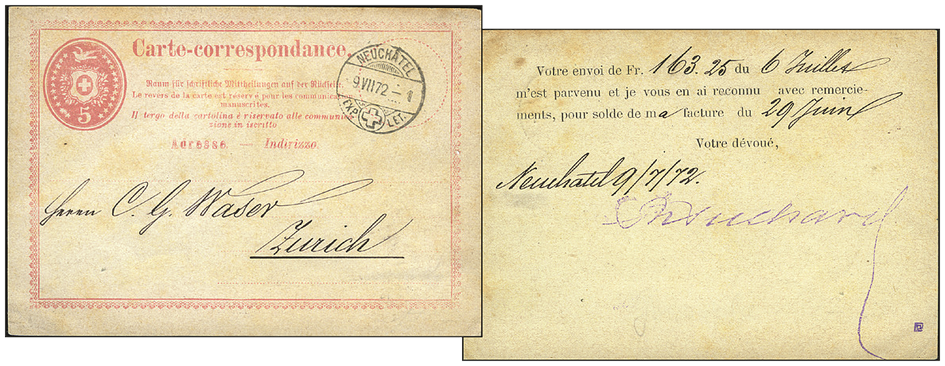 Carte-correspondance.
NEUCHÂTEL
-9.VII.72.- 1
EXP. LET.
Raum für schriftliche Mittheilungen auf der Rückseite
Le revers de la carte est réservé pour les communications
manuscrites.
Il tergo della cartolina è riservato alle communica-
zione in iscritto
5
Adresse. — Indirizzo.
Herrn C. G. Waser
Zurich
Votre envoi de Fr. 163.25 du 6 Juillet
m'est parvenu et je vous en ai reconnu avec remercie-
ments, pour solde de ma facture du 29 Juin
Votre dévoué,
Neuchatel 9/7/72.
Ph Suchard